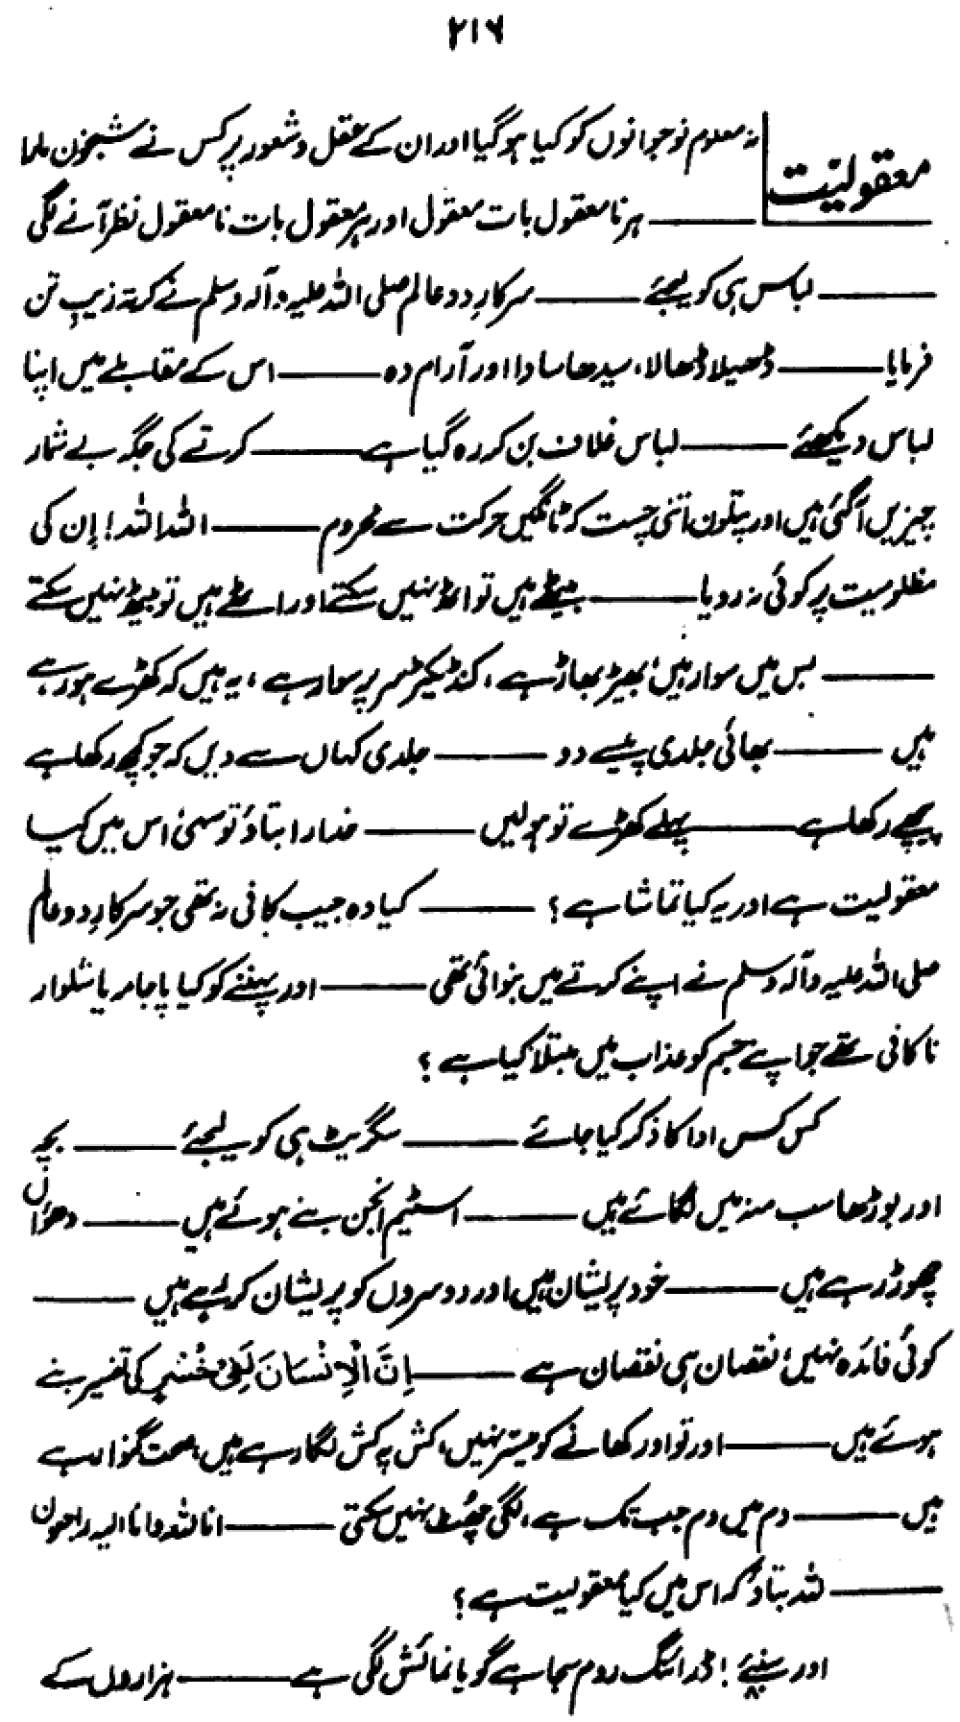 ۲۱۶
معقولیّت
نہ معلوم نوجوانوں کو کیا ہو گیا اور ان کے عقل و شعور پر کس نے شبخون مارا
——— ہر نا معقول بات معقول اور ہر معقول بات نا معقول نظر آنے لگی
——— لباس ہی کو لیجئے ——— سرکارِ دو عالم صلی اللہ علیہ وآلہ وسلم نے کرتہ زیبِ تن
فرمایا ——— ڈھیلا ڈھالا، سیدھا سادا اور آرام دہ ——— اس کے مقابلے میں اپنا
لباس دیکھئے ——— لباس غلاف بن کر رہ گیا ہے ——— کرتے کی جگہ بے شمار
چیزیں آگئی ہیں اور پتلون اتنی چست کہ ٹانگیں حرکت سے محروم ——— اللہ اللہ! اِن کی
مظلومیت پر کوئی نہ رویا ——— بیٹھے ہیں تو اٹھ نہیں سکتے اور اٹھے ہیں تو بیٹھ نہیں سکتے
——— بس میں سوار ہیں، بھیڑ بھاڑ ہے، کنڈیکٹر سر پر سوار ہے، یہ ہیں کہ کھڑے ہو رہے
ہیں ——— بھائی جلدی پیسے دو ——— جلدی کہاں سے دیں کہ جو کچھ رکھا ہے
پیچھے رکھا ہے ——— پہلے کھڑے تو ہولیں ——— خدارا بتاؤ تو سہی، اس میں کیا
معقولیت ہے اور یہ کیا تماشا ہے؟ ——— کیا وہ جیب کافی نہ تھی جو سرکارِ دو عالم
صلی اللہ علیہ وآلہ وسلم نے اپنے کرتے میں بنوائی تھی ——— اور پہننے کو کیا پاجامہ یا شلوار
ناکافی تھے جو اپنے جسم کو عذاب میں مبتلا کیا ہے؟
کس کس ادا کا ذکر کیا جائے ——— سگریٹ ہی کو لیجئے ——— بچہ
اور بوڑھا سب منہ میں لگائے ہیں ——— اسٹیم انجن بنے ہوئے ہیں ——— دھواں
چھوڑ رہے ہیں ——— خود پریشان ہیں اور دوسروں کو پریشان کر رہے ہیں ———
کوئی فائدہ نہیں، نقصان ہی نقصان ہے ——— اِنَّ الْاِنْسَانَ لَفِیْ خُسْرٍ کی تفسیر بنے
ہوئے ہیں ——— اور تو اور کھانے کو میسّر نہیں، کش پہ کش لگا رہے ہیں، صحت گنوا رہے
ہیں ——— دم میں دم جب تک ہے، لگی چھُٹ نہیں سکتی ——— انا للہ وانا الیہ راجعون
——— للہ بتاؤ کہ اس میں کیا معقولیت ہے؟
اور سنیئے! ڈرائنگ روم سجا ہے گویا نمائش لگی ہے ——— ہزاروں کے